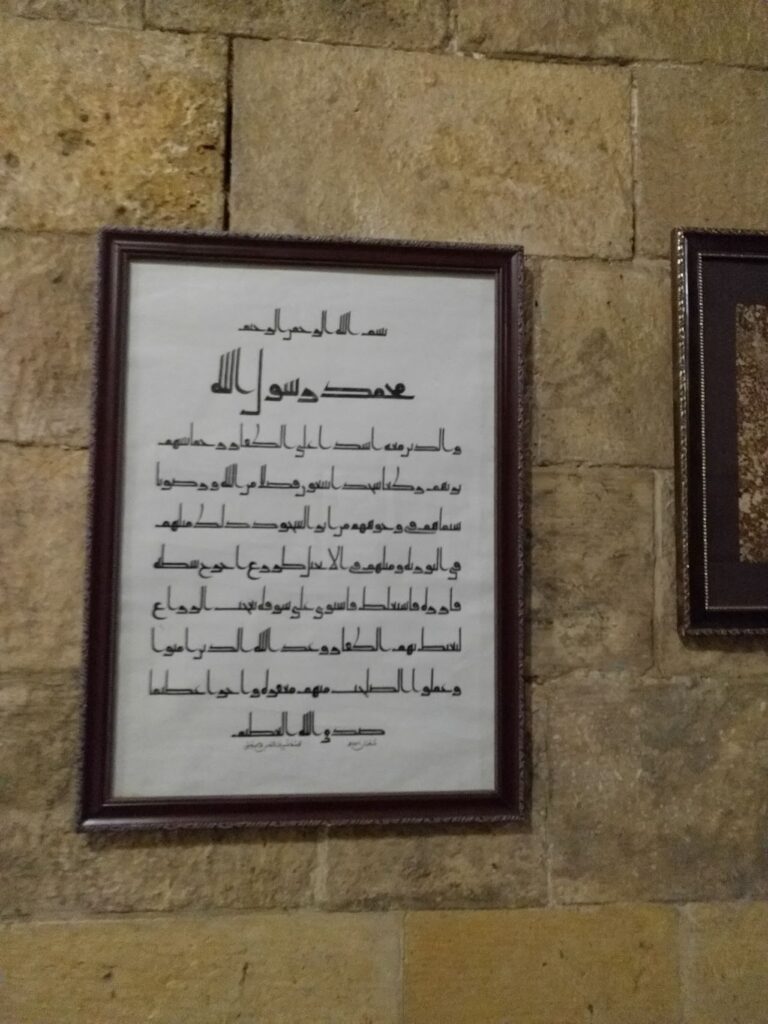 بسم الله الرحمن الرحيم
محمد رسول الله
والذين معه اشدا على الكفار رحما بينهم
تريهم ركعا سجدا يبتغون فضلا من الله ورضونا
سيماهم في وجوههم من اثر السجود ذلك مثلهم
في التورية ومثلهم في الانجيل كزرع اخرج شطه
فازره فاستغلظ فاستوى على سوقه يعجب الزراع
ليغيظ بهم الكفار وعد الله الذين امنوا
وعملوا الصلحت منهم مغفرة واجرا عظيما
صدق الله العظيم